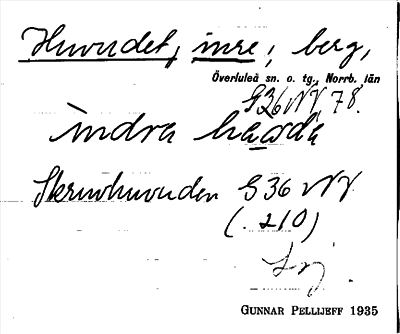 Huvudet, inre; berg,
Överluleå sn. o. tg., Norrb. län
G36 NV, 78.
indra
Skruvhuvuden G36 NV
(. 210)
GUNNAR PELLIJEFF 1935